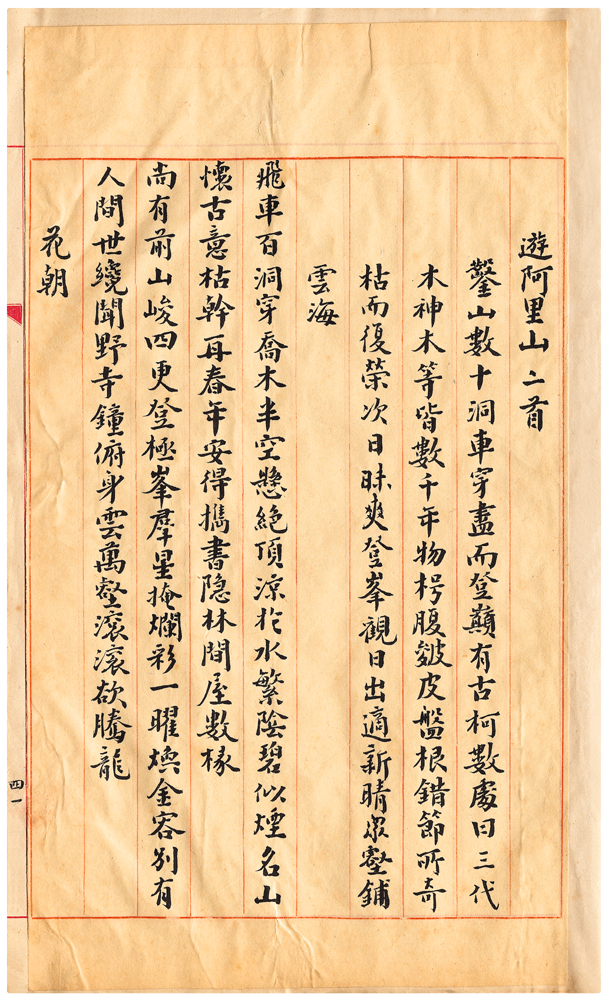 遊阿里山二首
鑿山數十洞車穿盡而登巔有古柯數處曰三代
木神木等皆數千年物枵腹皴皮盤根錯節所奇
枯而復榮次日昧爽登峯觀日出適新晴眾壑鋪
雲海
飛車百洞穿喬木半空懸絕頂涼於水繁陰碧似煙名山
懷古意枯幹再春年安得攜書隱林間屋數椽
尚有前山峻四更登極峯羣星掩爛彩一曜煥金容別有
人間世纔聞野寺鐘俯身雲萬壑滾滾欲騰龍
花朝
四一